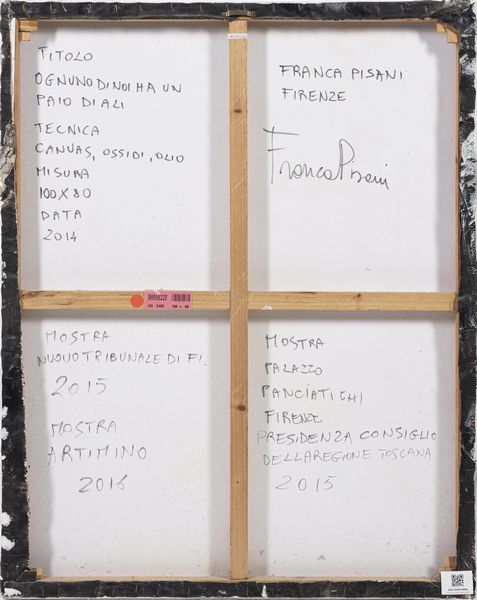 TITOLO
OGNUNO DI NOI HA UN
PAIO DI ALI
TECNICA
CANVAS, OSSIDI, OLIO
MISURA
100X80
DATA
2014
FRANCA PISANI
FIRENZE
Franca Pisani
MOSTRA
NUOVO TRIBUNALE DI FI.
2015
MOSTRA
ARTIMINO
2016
MOSTRA
PALAZZO
PANCIATICHI
FIRENZE
PRESIDENZA CONSIGLIO
DELLA REGIONE TOSCANA
2015